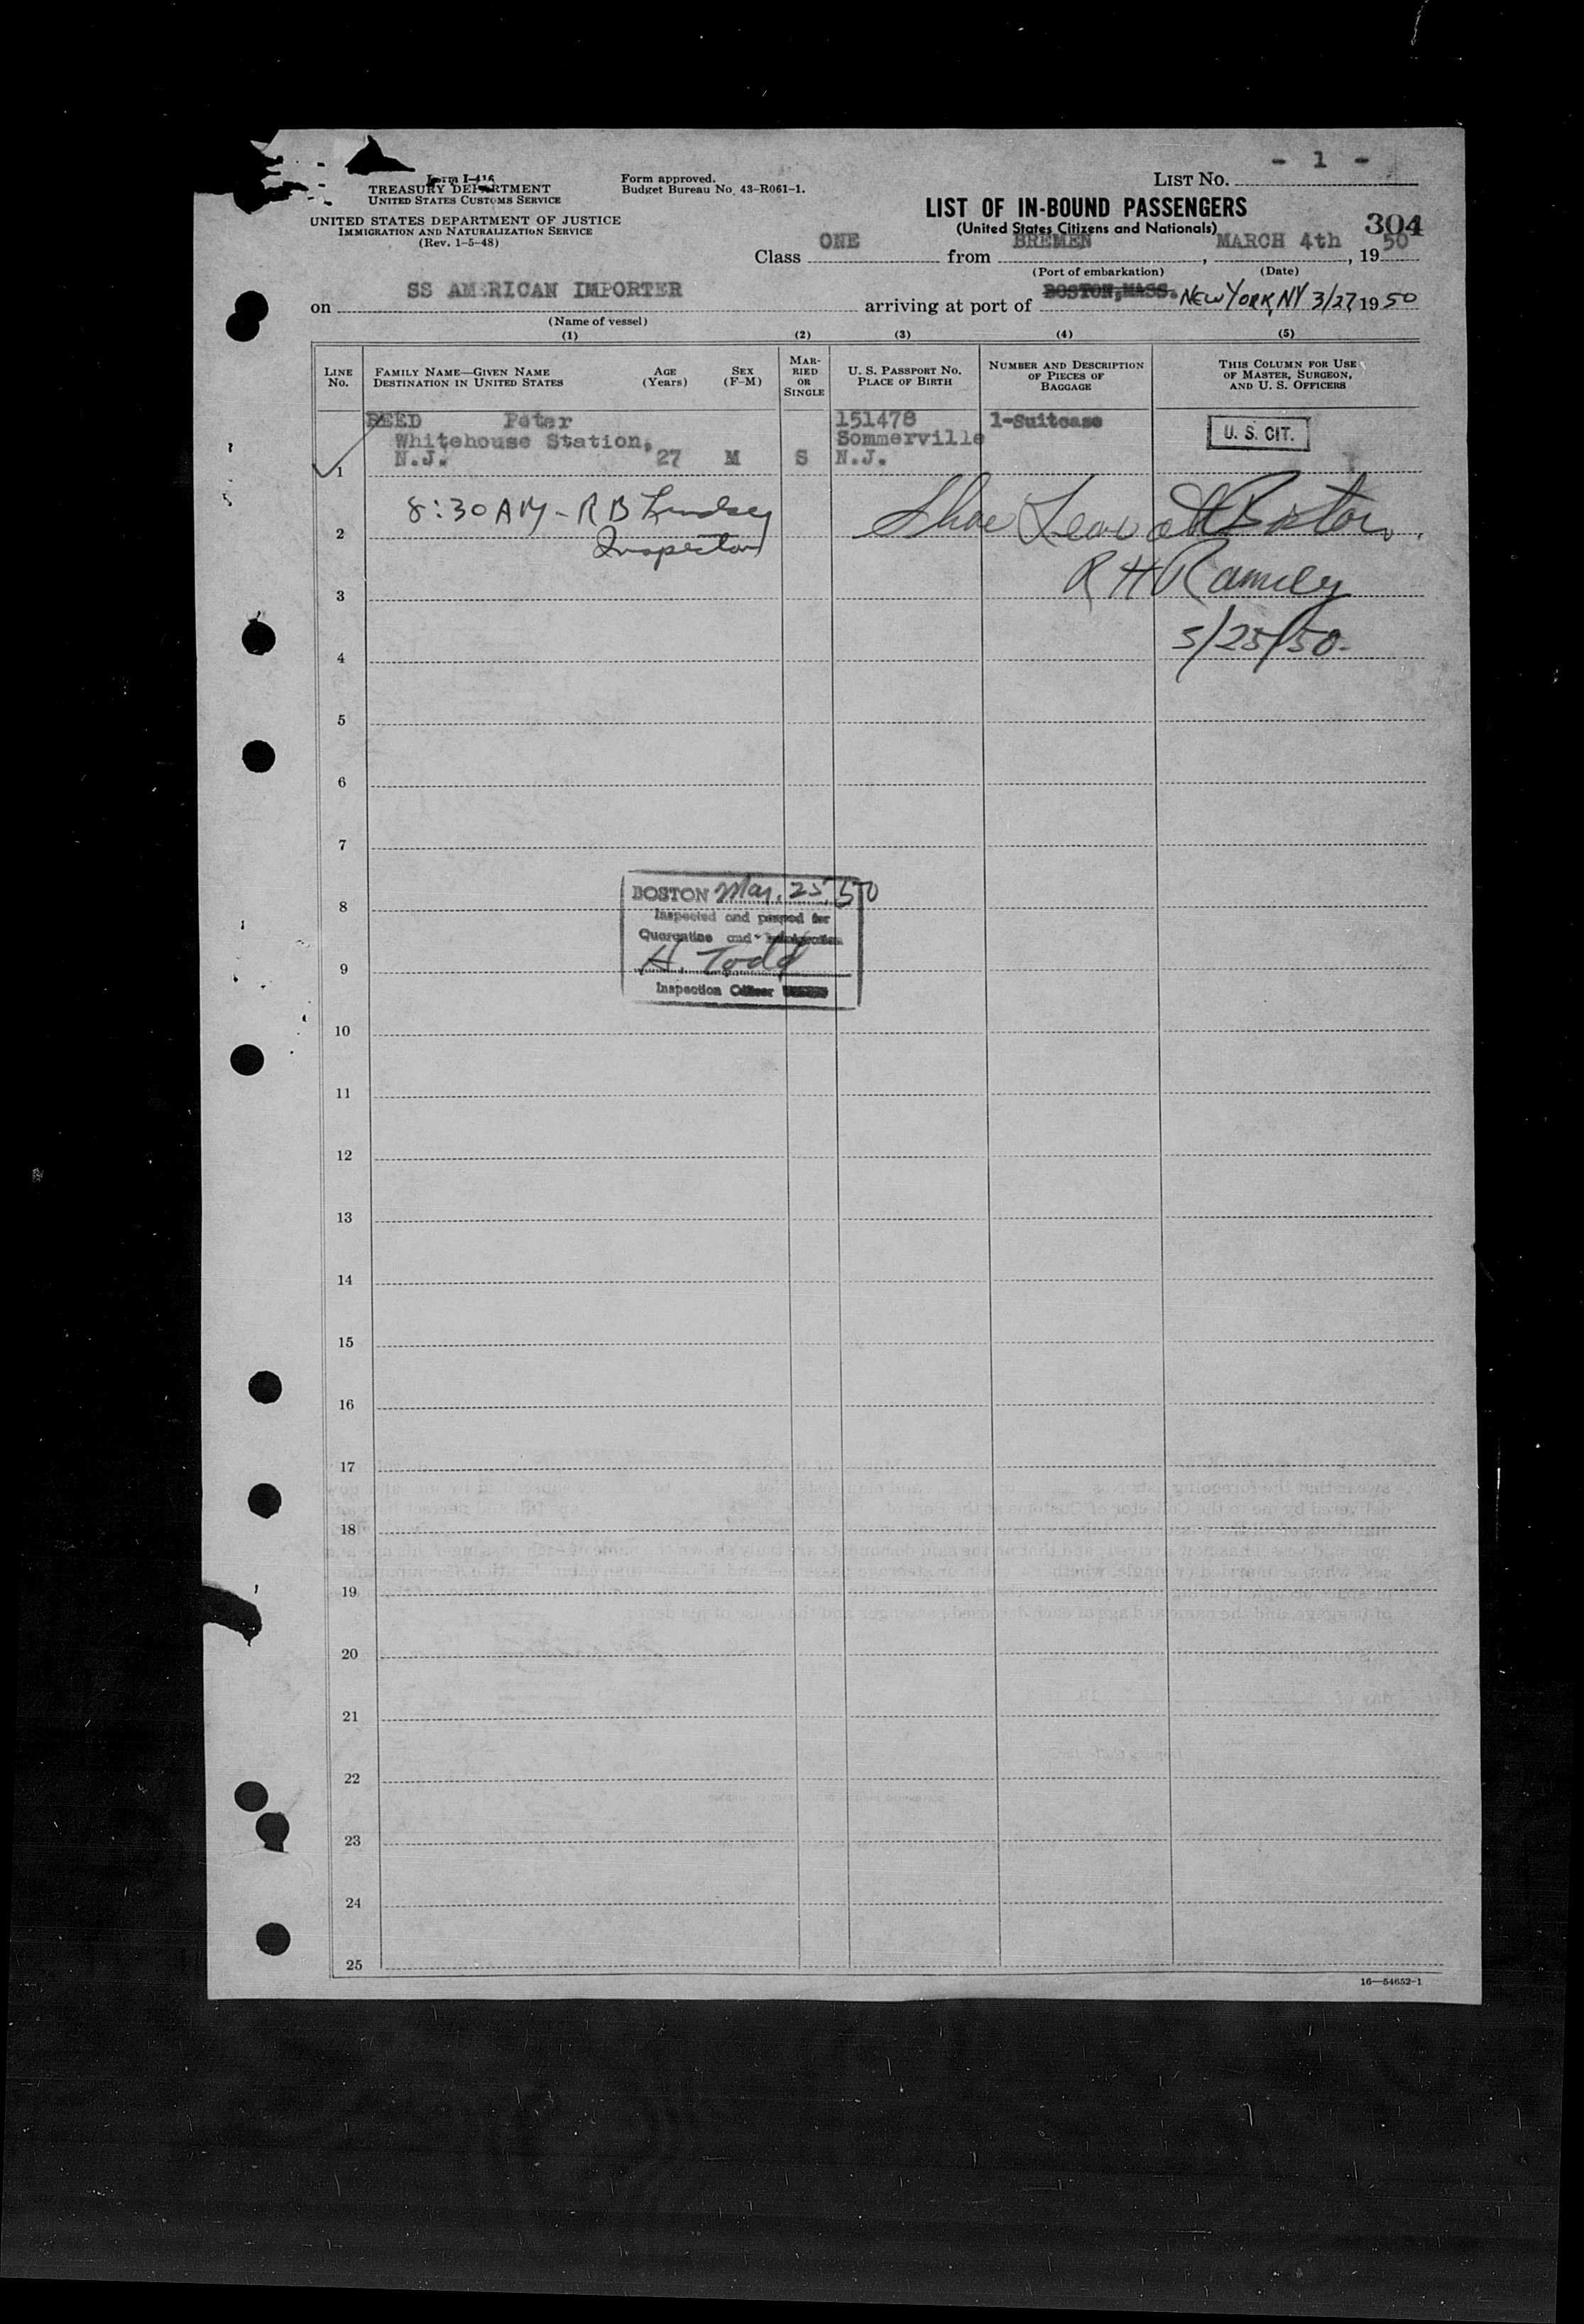 - 1 -
Form I-416
TREASURY DEPARTMENT
UNITED STATES CUSTOMS SERVICE
Form approved.
Budget Bureau No. 43-R061-1.
LIST No.
UNITED STATES DEPARTMENT OF JUSTICE
IMMIGRATION AND NATURALIZATION SERVICE
(Rev. 1-5-48)
LIST OF IN-BOUND PASSENGERS
(United States Citizens and Nationals)
304
Class ONE from BREMEN, MARCH 4th, 1950
(Port of embarkation) (Date)
on SS AMERICAN IMPORTER arriving at port of BOSTON, MASS. NEW YORK, NY 3/27, 1950
(Name of vessel)
(1) (2) (3) (4) (5)
LINE No.
FAMILY NAME—GIVEN NAME
DESTINATION IN UNITED STATES
AGE
(Years)
SEX
(F-M)
MARRIED OR SINGLE
U. S. PASSPORT NO.
PLACE OF BIRTH
NUMBER AND DESCRIPTION
OF PIECES OF
BAGGAGE
THIS COLUMN FOR USE
OF MASTER, SURGEON,
AND U. S. OFFICERS
REED Peter 151478 1-Suitcase
Whitehouse Station, Sommerville U. S. CIT.
1 N.J. 27 M S N.J.
8:30 AM - R B Lindsey
Shore Leave at Boston
2
Inspector
R H Ramsey
3
5/25/50
4
5
6
7
BOSTON Mar. 25, 50
8
Inspected and passed for
Quarantine and
H. Todd
9
Inspection Officer
10
11
12
13
14
15
16
17
18
19
20
21
22
23
24
25
16—54652-1